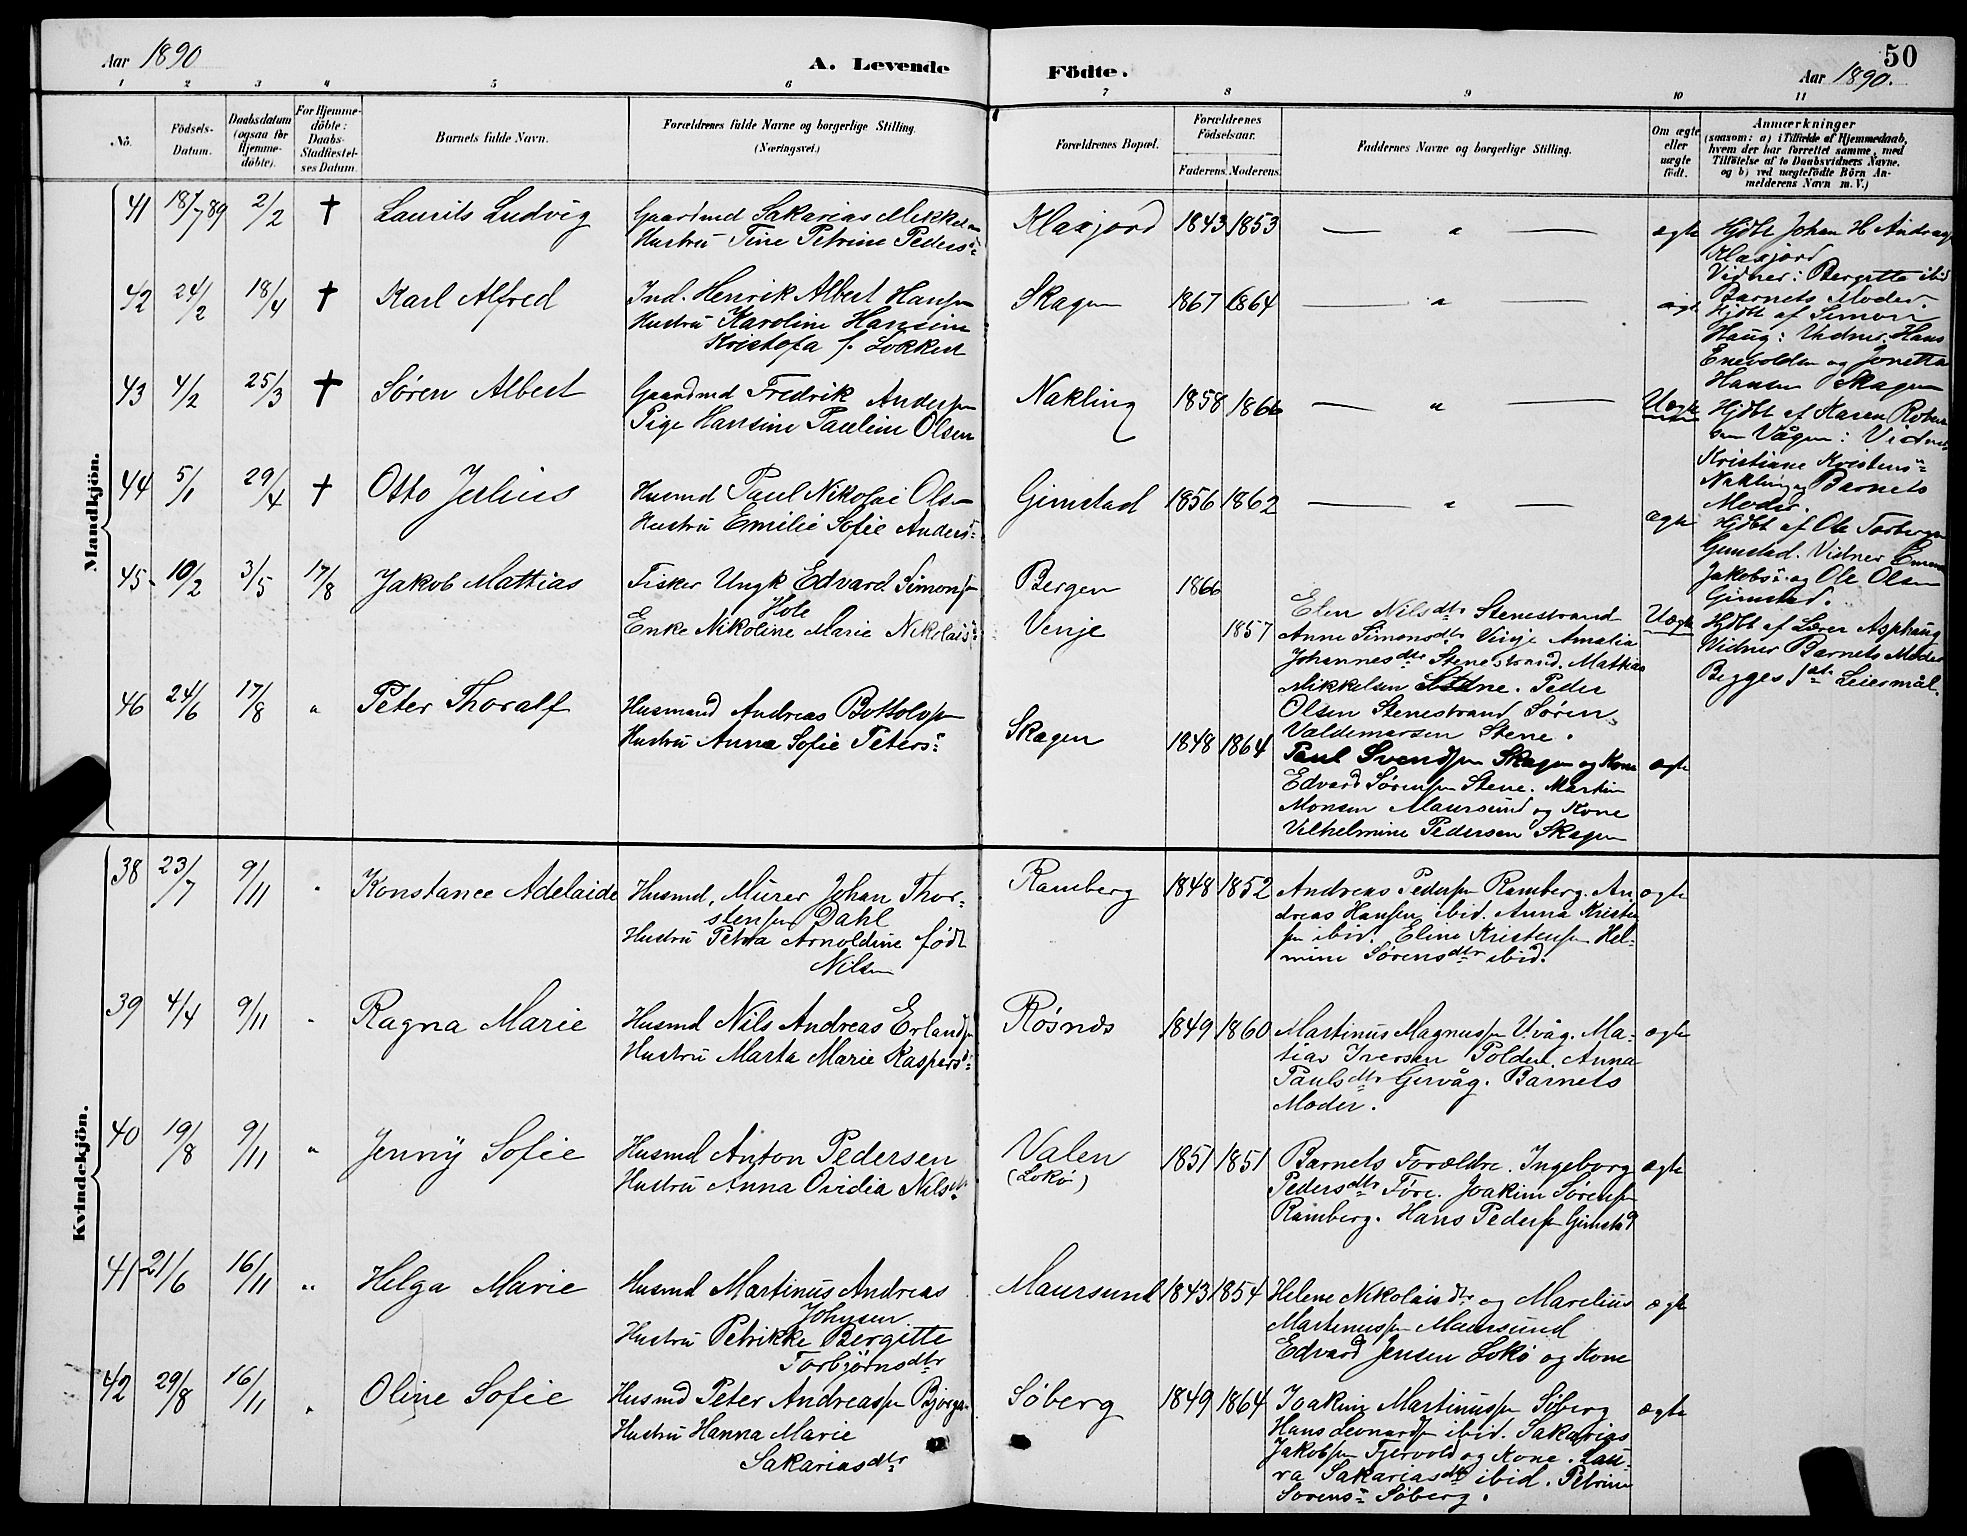 Aar 1890
A. Levende
Födte.
50
Aar 1890.
1 2 3 4 5 6 7 8 9 10 11
No.
Födsels-
Datum.
Daabsdatum
(ogsaa for
Hjemme-
döbte).
For Hjemme-
döbte:
Daabs-
Stadfæstel-
ses Datum.
Barnets fulde Navn.
Forældrenes fulde Navne og borgerlige Stilling.
(Næringsvei.)
Forældrenes Bopæl.
Forældrenes
Födselsaar.
Faderens.
Moderens.
Faddernes Navne og borgerlige Stilling.
Om ægte
eller
uægte
født.
Anmærkninger
(saasom: a) i Tilfælde af Hjemmedaab,
hvem der har forrettet samme, med
Tilføielse af to Daabsvidners Navne,
og b) ved uægtefödte Börn An-
melderens Navn m. V.)
Mandkjön.
41 18/7 89 2/2 † Laurits Ludvig
Gaardmd Sakarias Mikkelsen
Hustru Tine Petrine Peders
Klaxjord 1843 1853 — " — ægte
Hjdbt Johan H
Klaxjord
Vidner: Bergitte ibid
Barnets Moder.
42 24/2 18/4 † Karl Alfred
Ind. Henrik Albert Hansen
Hustru Karoline Hansine
Kristofa f. Lokken
Skagen 1867 1864 — " — ægte
Hjdbt af Simon
Haug: Vidner, Hans
Enevoldsen og Jonetta
Hansen Skagen
43 4/2 25/3 † Søren Albert
Gaardmd Fredrik Andersen
Pige Hansine Pauline Olsen
Nakling 1858 1866 — " — Uægte
Hjdbt af Karen
Vågen: Vidner
Kristiane Kristens
Nakling og Barnets
Moder.
44 5/1 29/4 † Otto Julius
Husmd Paul Nikolai Olsen
Hustru Emilie Sofie Anders
Gimstad 1856 1862 — " — ægte
Hjdbt af Ole Torbergsen
Gimstad. Vidner
Jakobs og Ole Olsen
Gimstad.
45 10/2 3/5 17/8 Jakob Mattias
Fisker Ungk Edvard Simonsen
Hole
Enke Nikoline Marie Nikolais
Bergen 1866
Vinje 1857
Elen Nilsdtr Stenestrand
Anne Simonsdtr Vinje Amalia
Johannesdtr Stenestrand. Mattias
Mikkelsen Stene. Peder
Olsen Stenestrand Søren
Valdemarsen Stene.
Uægte
Hjdbt af Lærer Asphaug
Vidner Barnets Moder
Begges 1ste Leiermål.
46 24/6 17/8 " Peter Thoralf
Husmand Andreas Bottolvsen
Hustru Anna Sofie Peters
Skagen 1848 1864
Paul Svendsen Skagen og Kone
Edvard Sørensen Stene. Martin
Monsen Maursund og Kone
Vilhelmine Pedersen Skagen
ægte
Kvindekjön.
38 23/7 9/11 " Konstance Adelaide
Husmd, Murer Johan Thor-
stensen Dahl
Hustru Petra Arnoldine født
Nilsen
Ramberg 1848 1852
Andreas Pedersen Ramberg. An-
dreas Hansen ibid. Anna Kriste
sen ibid. Eline Kristensen Hel-
mine Sørensdtr ibid.
ægte
39 4/4 9/11 " Ragna Marie
Husmd Nils Andreas Erlandsen
Hustru Marta Marie Kaspers
Røsnæs 1849 1860
Martinus Magnussen Uvåg. Ma-
tias Iversen Polden. Anna
Paulsdtr Guvåg. Barnets
Moder.
ægte
40 19/8 9/11 " Jenny Sofie
Husmd Anton Pedersen
Hustru Anna Ovidia Nilsdtr
Valen
(Lokø)
1851 1851
Barnets Forældre. Ingeborg
Pedersdtr Føre. Joakim Sørensen
Ramberg. Hans Pedersen Gimstad
ægte
41 21/6 16/11 " Helga Marie
Husmd Martinus Andreas
Johnsen
Hustru Petrikke Bergitte
Torbjørnsdtr
Maursund 1843 1854
Helene Nikolaisdtr og Marelius
Martinussen Maursund
Edvard Jensen Lokø og Kone
ægte
42 29/8 16/11 " Oline Sofie
Husmd Peter Andreassen
Hustru Hanna Marie
Sakariasdtr
Søberg 1849 1864
Joakim Martinussen Søberg
Hans Leonards ibid. Sakarias
Jakobsen Tjervold og Kone. Lau-
ra Sakariasdtr ibid. Petrine
Sorens Søberg.
ægte